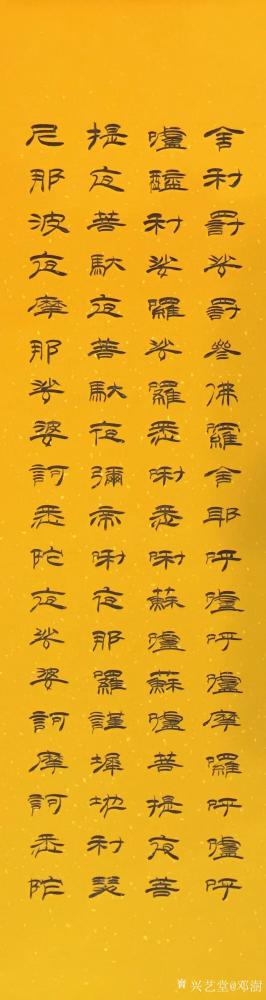 舍利罰娑罰參佛羅舍耶呼嚧呼嚧摩羅呼嚧呼
嚧醯利娑囉娑囉悉唎悉唎蘇嚧蘇嚧菩提夜菩
提夜菩馱夜菩馱夜彌帝唎夜那羅謹墀地利瑟
尼那波夜摩那娑婆訶悉陀夜娑婆訶摩訶悉陀
兴艺堂@邓澍